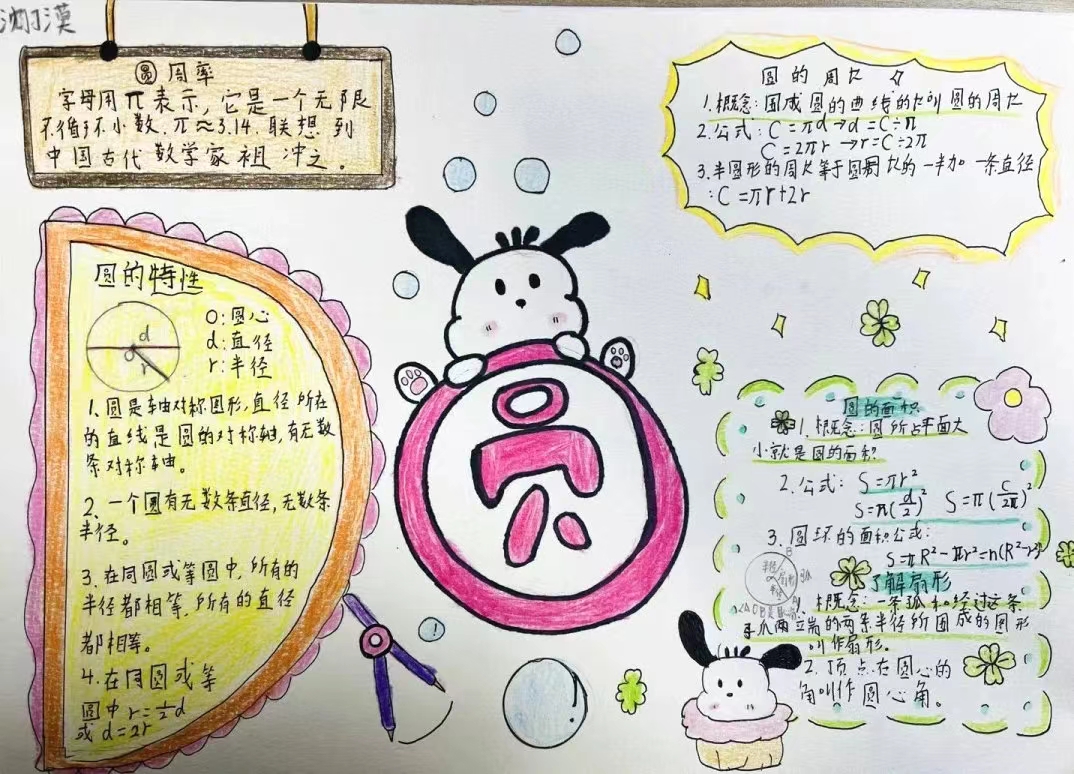 圆周率
字母用π表示,它是一个无限
不循环小数.π≈3.14.联想到
中国古代数学家祖冲之。
圆的周长
1.概念:围成圆的曲线的长叫圆的周长
2.公式:C=πd→d=C÷π
C=2πr→r=C÷2π
3.半圆形的周长等于圆周长的一半加一条直径
:C=πr+2r
圆的特性
O:圆心
d:直径
r:半径
d
O
r
1、圆是轴对称图形,直径所在
的直线是圆的对称轴,有无数
条对称轴。
2、一个圆有无数条直径,无数条
半径。
3.在同圆或等圆中,所有的
半径都相等,所有的直径
都相等。
4.在同圆或等
圆中r=½d
或d=2r
圆
圆的面积
1.概念:圆所占平面大
小就是圆的面积
2.公式:S=πr²
S=π(d/2)² S=π(C/2π)²
3.圆环的面积公式:
S=πR²-πr²=π(R²-r²)
了解扇形
1、概念:一条弧和经过这条
弧两端的两条半径所围成的图形
叫作扇形。
2.顶点在圆心的
角叫作圆心角。